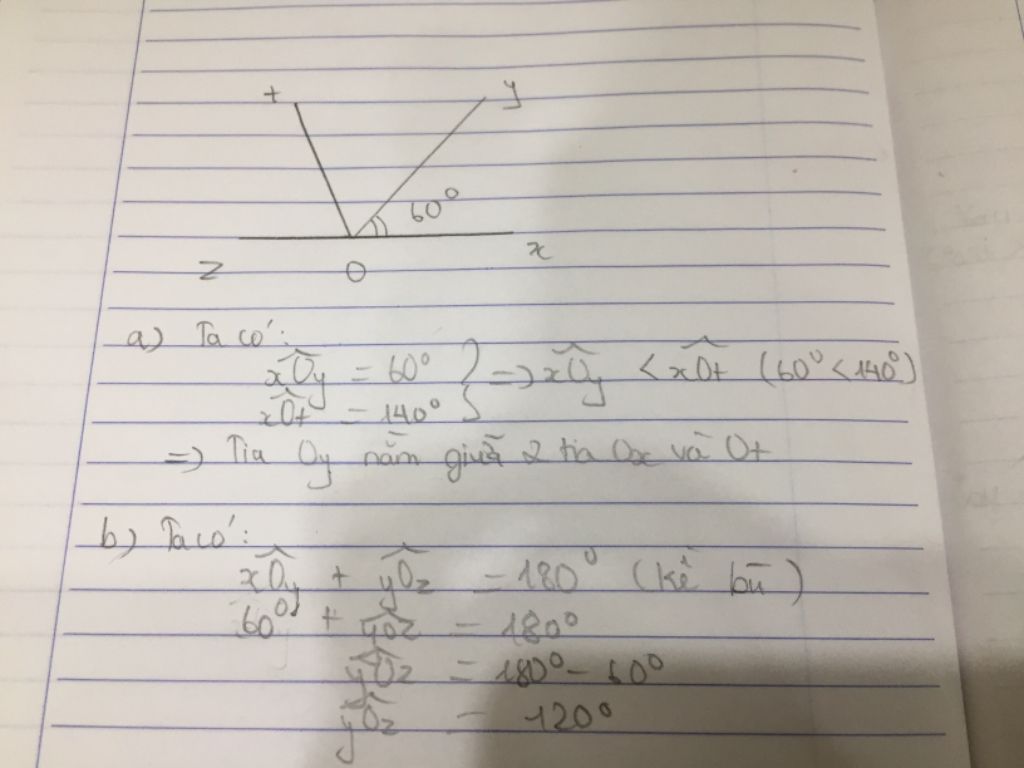 t y
60°
z O x
a) Ta có:
xÔy = 60° } => xÔy < xÔt (60° < 140°)
xÔt = 140°
=> Tia Oy nằm giữa 2 tia Ox và Ot
b) Ta có:
xÔy + yÔz = 180° (kề bù)
60° + yÔz = 180°
yÔz = 180° - 60°
yÔz = 120°